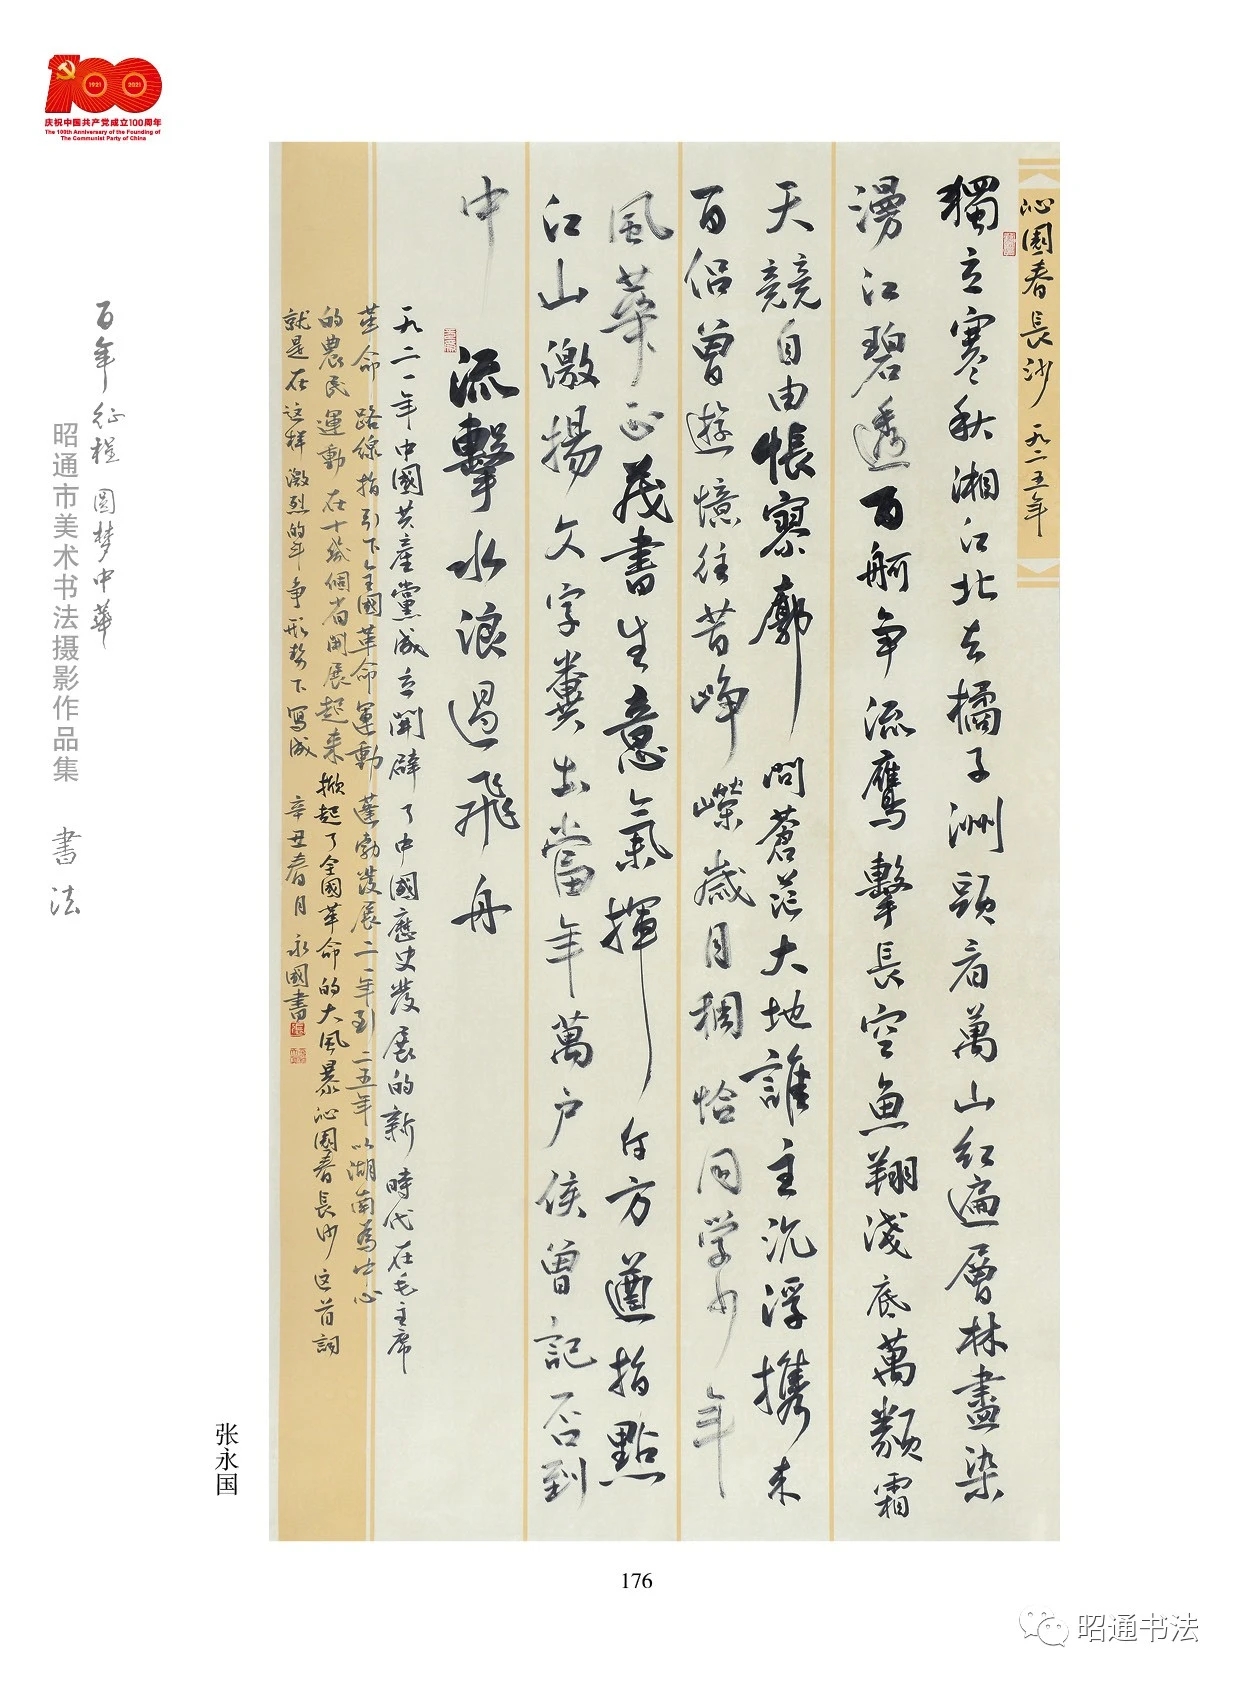 庆祝中国共产党成立100周年
The 100th Anniversary of the Founding of
The Communist Party of China
1921
2021
百年征程 圆梦中華
昭通市美术书法摄影作品集 书法
沁園春長沙 一九二五年
獨立寒秋湘江北去橘子洲頭看萬山紅遍層林盡染
漫江碧透百舸争流鷹擊長空魚翔淺底萬類霜
天競自由悵寥廓問蒼茫大地誰主沉浮攜来
百侣曾遊憶往昔崢嶸歲月稠恰同学少年
風華正茂書生意氣揮斥方遒指點
江山激揚文字糞土當年萬户侯曾記否到
中流擊水浪遏飛舟
一九二一年中國共產黨成立開辟了中國歷史發展的新時代在毛主席
革命路線指引下全國革命運動蓬勃發展二一年到二五年以湖南為中心
的農民運動在十幾個省開展起来掀起了全國革命的大風暴沁園春長沙这首詞
就是在这样激烈的斗争形势下寫成 辛丑春月 永國書
张永国
176
昭通书法